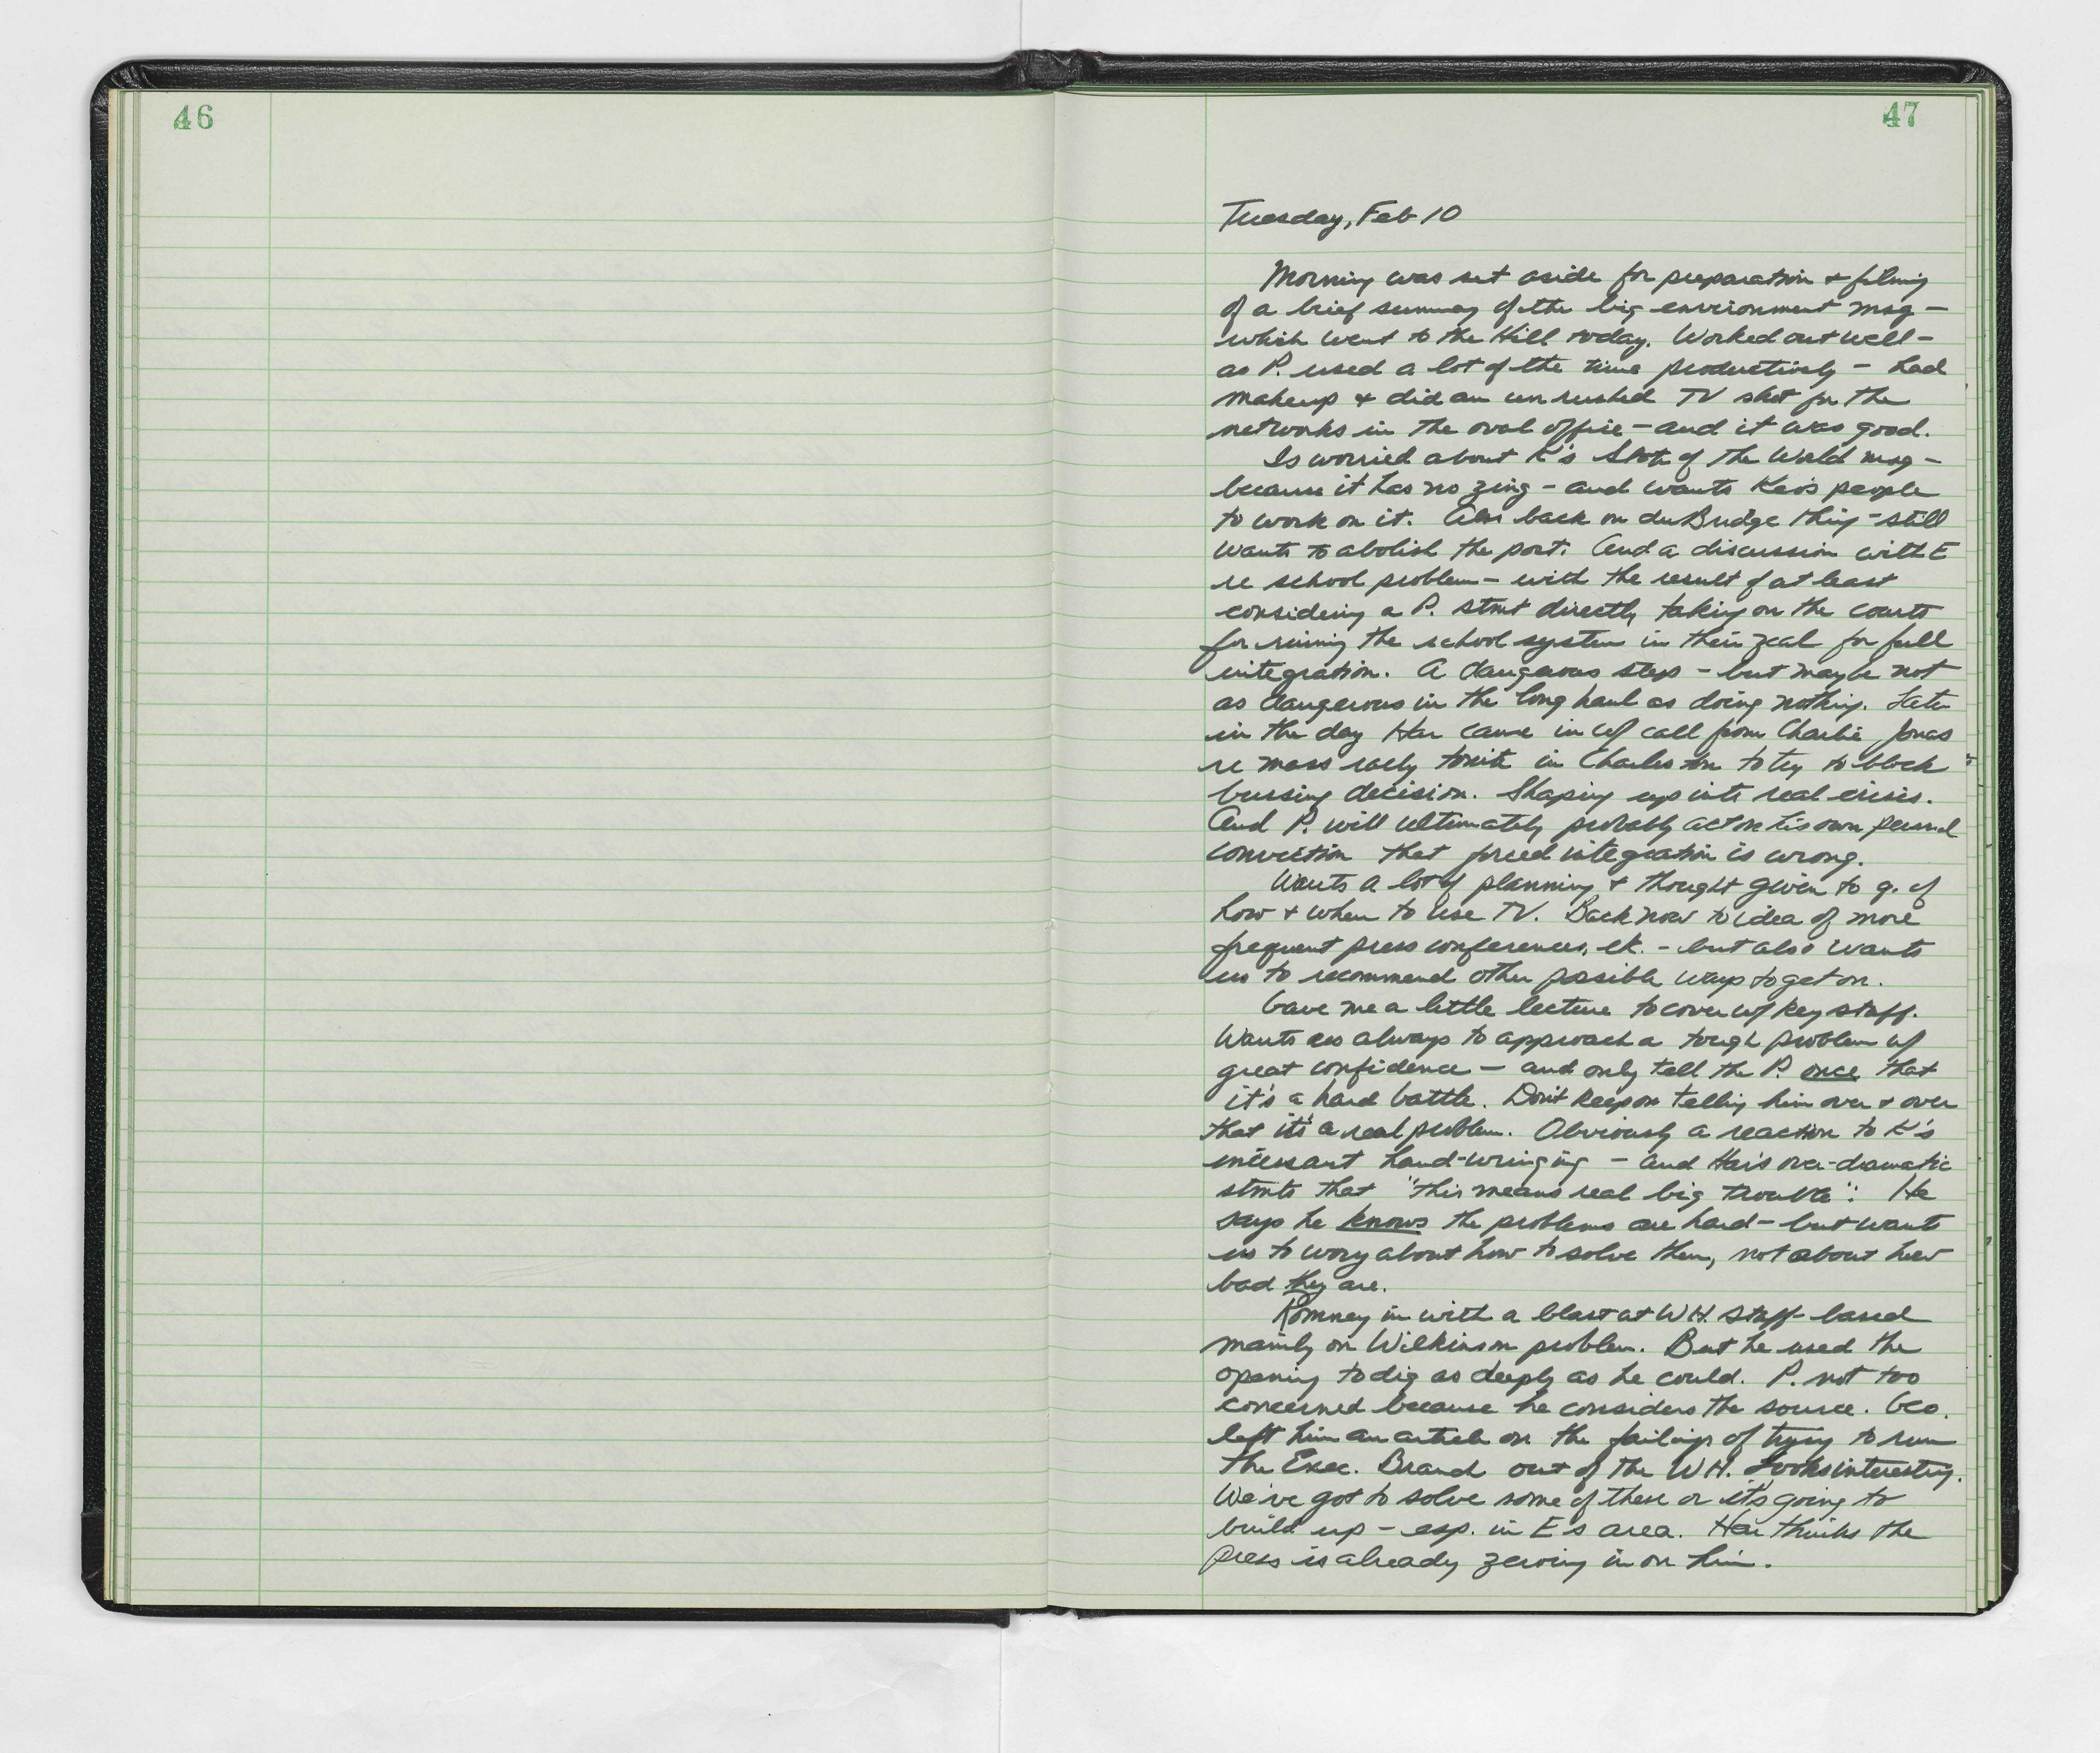 46
47
Tuesday, Feb 10
Morning was set aside for preparation + filming
of a brief summary of the big environment msg -
which went to the Hill today. Worked out well -
as P. used a lot of the time productively - had
makeup + did an unrushed TV shot for the
networks in the oval office - and it was good.
Is worried about K's State of the World msg -
because it has no zing - and wants Keo's people
to work on it. Also back on duBridge thing - still
wants to abolish the post. And a discussion with E
re school problem - with the result of at least
considering a P. stmt directly taking on the courts
for ruining the school system in their zeal for full
integration. A dangerous step - but maybe not
as dangerous in the long haul as doing nothing. Later
in the day Har came in w/ call from Charlie Jonas
re mass rally tonite in Charleston to try to block
bussing decision. Shaping up into real crisis.
And P. will ultimately probably act on his own personal
conviction that forced integration is wrong.
Wants a lot of planning + thought given to q. of
how + when to use TV. Back now to idea of more
frequent press conferences, etc. - but also wants
us to recommend other possible ways to get on.
Gave me a little lecture to cover w/ key staff.
Wants us always to approach a tough problem w/
great confidence - and only tell the P. once that
it's a hard battle. Don't keep on telling him over + over
that it's a real problem. Obviously a reaction to K's
incessant hand-wringing - and Har's over-dramatic
stmts that "this means real big trouble". He
says he knows the problems are hard - but wants
us to worry about how to solve them, not about how
bad they are.
Romney in with a blast at WH. staff - based
mainly on Wilkinson problem. But he used the
opening to dig as deeply as he could. P. not too
concerned because he considers the source. Geo.
left him an article on the failings of trying to run
the Exec. Branch out of the WH. Looks interesting.
We've got to solve some of these or it's going to
build up - esp. in E's area. Har thinks the
press is already zeroing in on him.